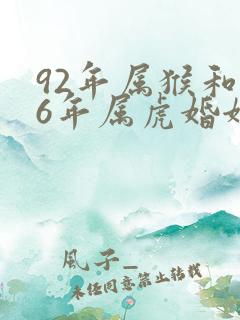 92年属猴和
6年属虎婚姻
風子_
未经同意禁止转载